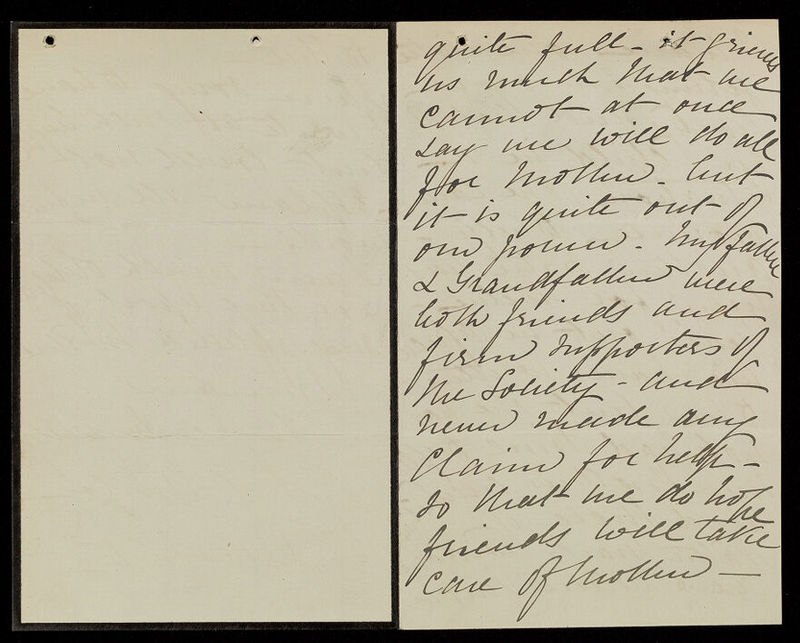 quite full - it grieves
us much that we
cannot at once
say we will do all
for Mother - but
it is quite out of
our power - My father
& Grandfather were
both friends and
firm supporters of
the Society - and
never made any
claim for help -
so that we do hope
friends will take
care of Mother -